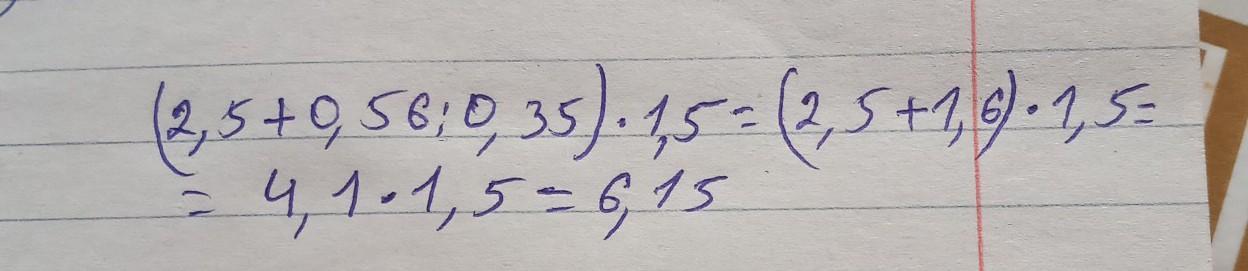 (2,5+0,56:0,35)·1,5=(2,5+1,6)·1,5=
=4,1·1,5=6,15